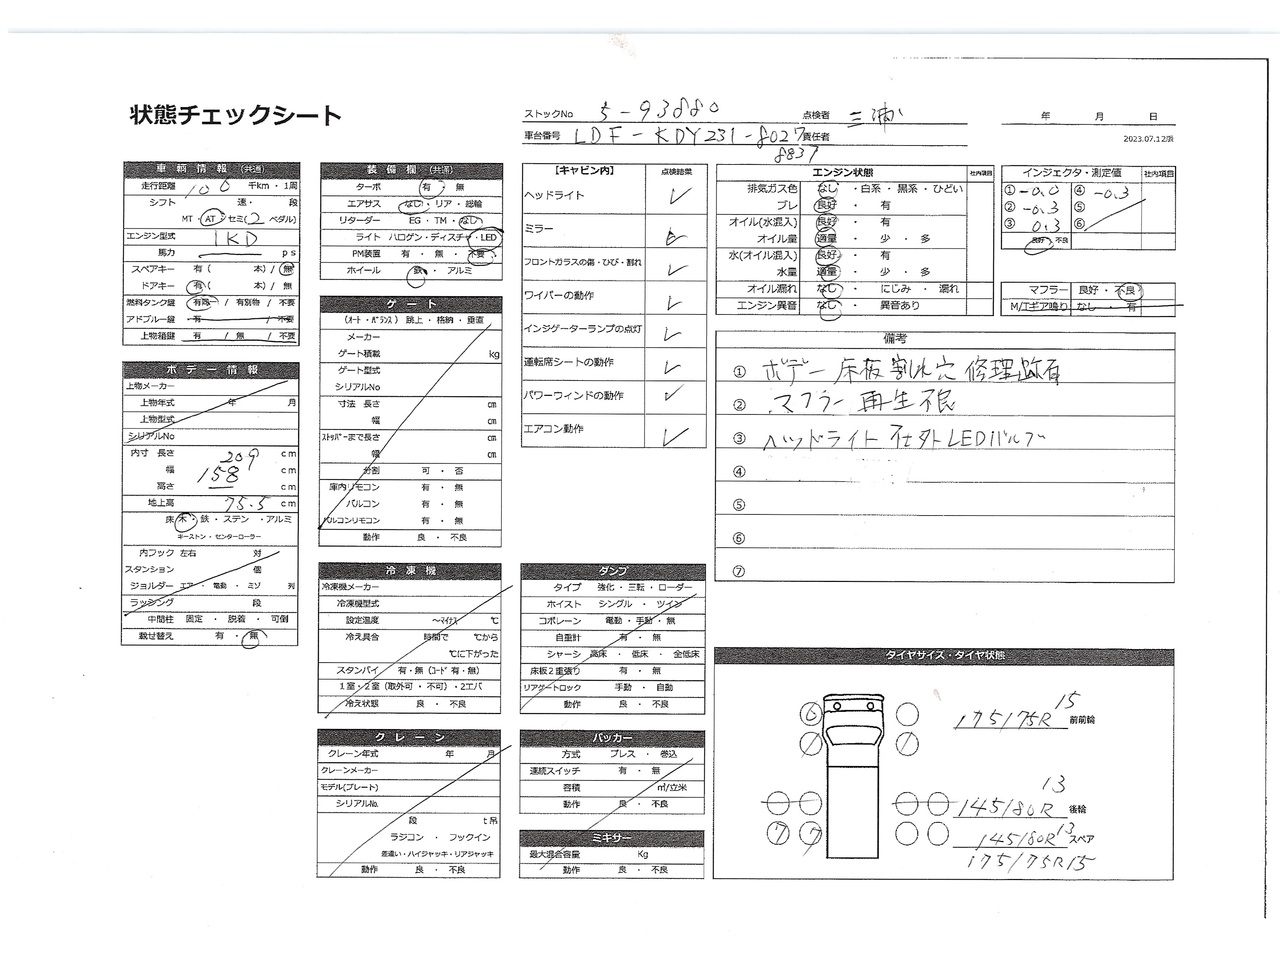 状態チェックシート
ストックNo 5-93880
点検者 三浦
年 月 日
車台番号 LDF-KDY231-8027
責任者
8837
2023.07.12版
車輌情報 (共通)
走行距離 千km・1周
シフト 速・ 段
MT ・ AT ・ セミ(2 ペダル)
エンジン型式 1KD
馬力 ps
スペアキー 有( 本) / 無
ドアキー 有( 本) / 無
燃料タンク鍵 / 有別物 / 不要
アドブルー鍵 有 / / 不要
上物箱鍵 有 / 無 / 不要
ボデー情報
上物メーカー
上物年式 年 月
上物型式
シリアルNo
内寸 長さ 209 cm
幅 158 cm
高さ cm
地上高 75.5 cm
床 木・鉄・ステン・アルミ
キーストン・センターローラー
内フック 左右 対
スタンション 個
ジョルダー エアー・電動・ミゾ 列
ラッシング 段
中間柱 固定・脱着・可倒
載せ替え 有・無
装備欄 (共通)
ターボ 有・無
エアサス なし・リア・総輪
リターダー EG・TM・なし
ライト ハロゲン・ディスチャ・LED
PM装置 有・無・不要
ホイール 鉄・アルミ
ゲート
(オート・バランス) 跳上・格納・垂直
メーカー
ゲート積載 kg
ゲート型式
シリアルNo
寸法 長さ cm
幅 cm
ストッパーまで長さ cm
幅 cm
分割 可・否
庫内リモコン 有・無
バルコン 有・無
バルコンリモコン 有・無
動作 良・不良
冷凍機
冷凍機メーカー
冷凍機型式
設定温度 ～マイナス ℃
冷え具合 時間で ℃から
℃に下がった
スタンバイ 有・無 (コード 有・無)
1室・2室 (取外可・不可)・2エバ
冷え状態 良・不良
クレーン
クレーン年式 年 月
クレーンメーカー
モデル(プレート)
シリアルNo.
段 t吊
ラジコン・フックイン
差違い・ハイジャッキ・リアジャッキ
動作 良・不良
【キャビン内】 点検結果
ヘッドライト
ミラー
フロントガラスの傷・ひび・割れ
ワイパーの動作
インジゲーターランプの点灯
運転席シートの動作
パワーウィンドの動作
エアコン動作
ダンプ
タイプ 強化・三転・ローダー
ホイスト シングル・ツイン
コボレーン 電動・手動・無
自重計 有・無
シャーシ 高床・低床・全低床
床板2重張り 有・無
リアゲートロック 手動・自動
動作 良・不良
パッカー
方式 プレス・巻込
連続スイッチ 有・無
容積 ㎥/立米
動作 良・不良
ミキサー
最大混合容量 Kg
動作 良・不良
エンジン状態 社内項目
排気ガス色 なし・白系・黒系・ひどい
ブレ 良好・有
オイル(水混入) 良好・有
オイル量 適量・少・多
水(オイル混入) 良好・有
水量 適量・少・多
オイル漏れ なし・にじみ・漏れ
エンジン異音 なし・異音あり
インジェクタ・測定値 社内項目
① -0.0 ④ -0.3
② -0.3 ⑤
③ 0.3 ⑥
良好・不良
マフラー 良好・不良
M/Tギア鳴り なし・有
備考
① ボデー床板割れ穴 修理跡有
② マフラー 再生不良
③ ヘッドライト 社外LEDバルブ
④
⑤
⑥
⑦
タイヤサイズ・タイヤ状態
175/75R15 前前輪
145/80R13 後輪
7 7
145/80R13 スペア
175/75R15